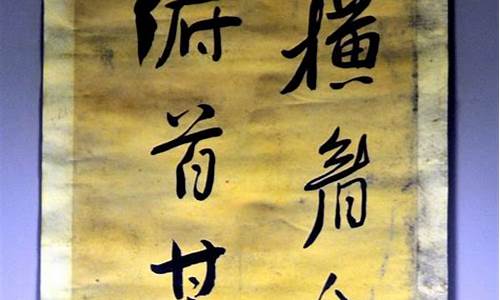 橫眉
俯首甘